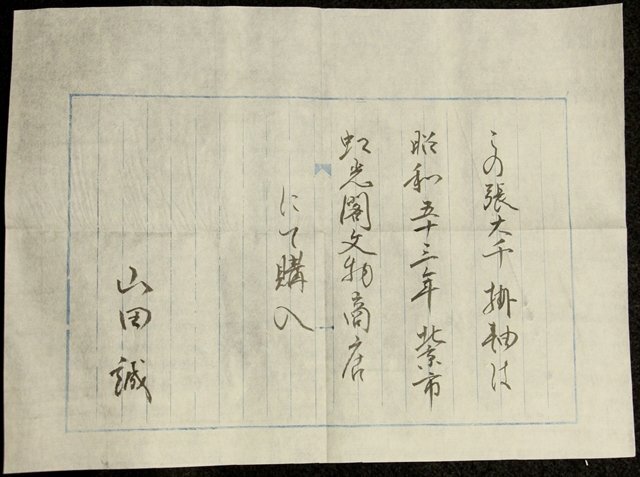 この張大千掛軸は
昭和五十三年北京市
虹光閣文物商店
にて購入
山田誠